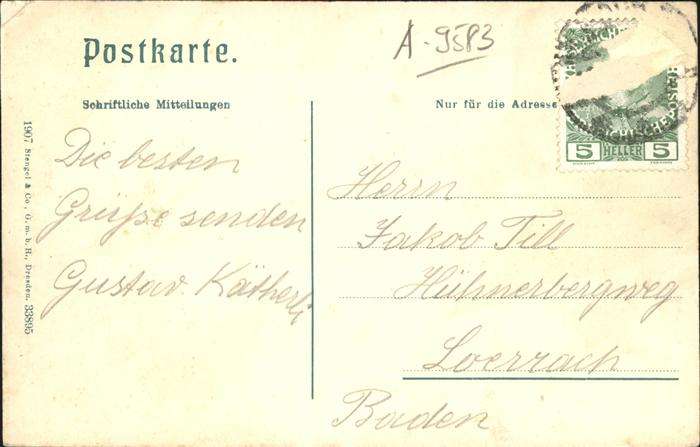 Postkarte.
A-9583
Schriftliche Mitteilungen
Nur für die Adresse
Die besten
Grüße senden
Gustav. Kätherli
Herrn
Jakob Till
Hühnerbergweg
Loerrach
Baden
1907 Stengel & Co., G. m. b. H., Dresden. 33895
5 HELLER 5